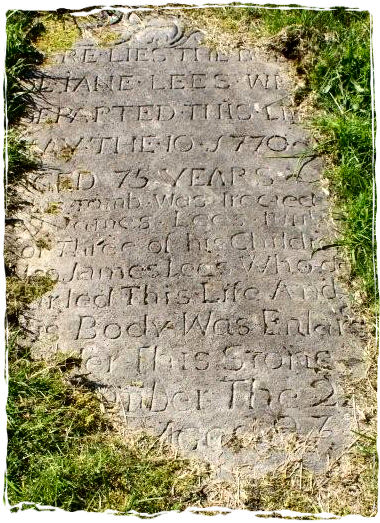 RE LIES THE BO
JANE LEES W
EPARTED THIS LI
AY THE 10 1770
GED 75 YEARS
Tomb Was Erected
James Lees
of Three of his Childre
James Lees Who
arted This Life And
Body Was Enla
er This Stone
ember The 2